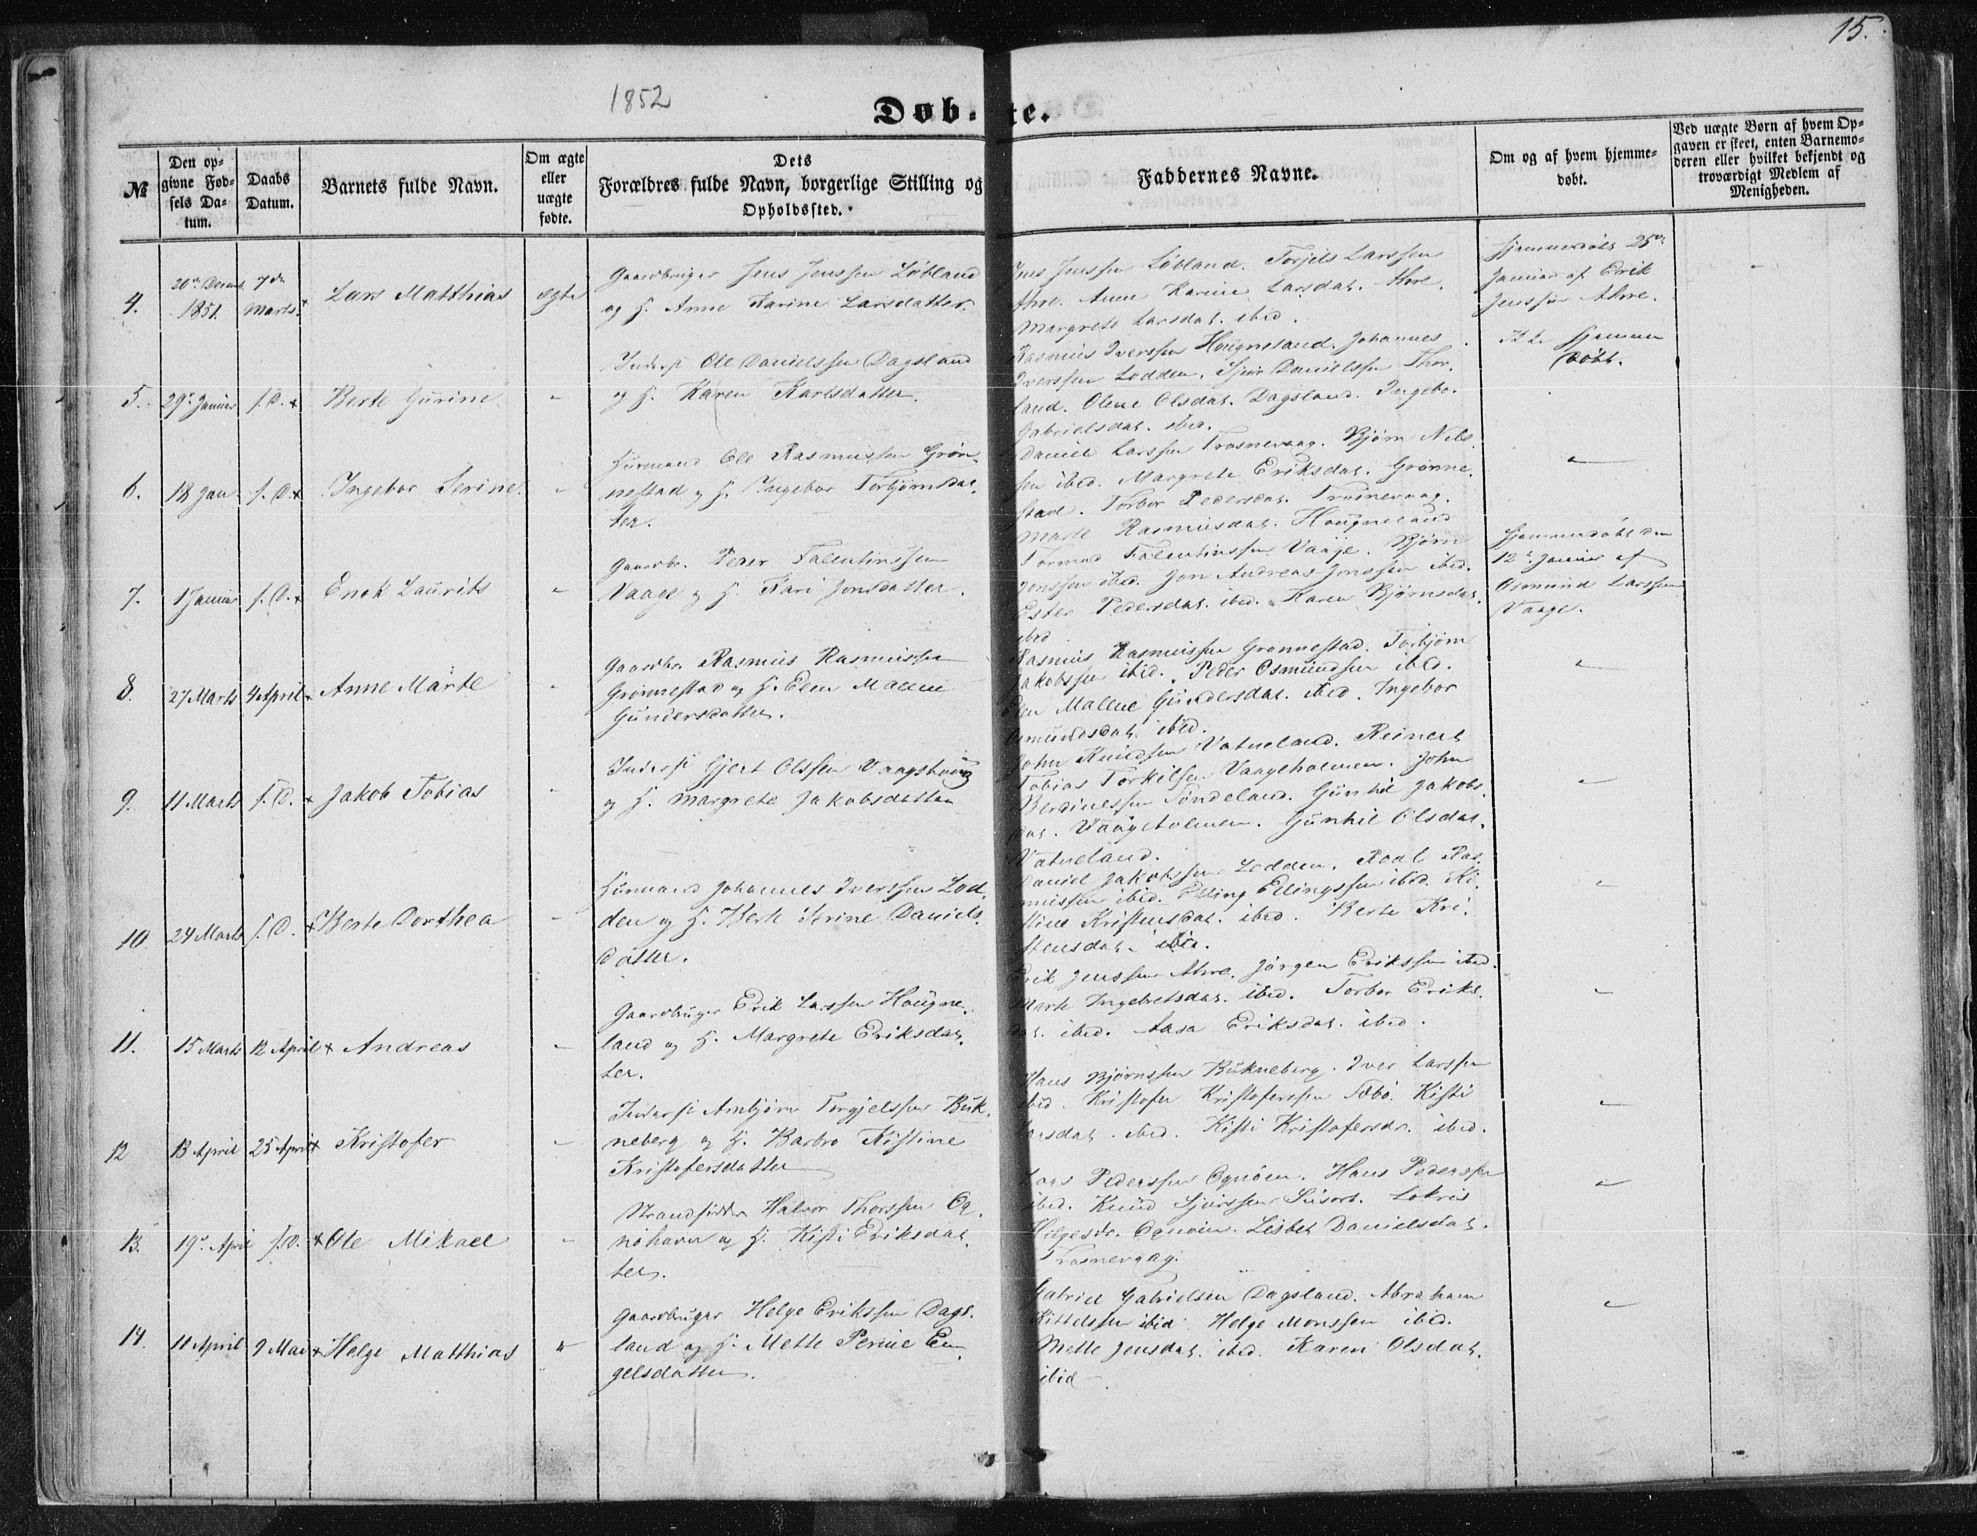 15.
1852
Døbte.
№
Den opgivne Fødsels Datum.
Daabs Datum.
Barnets fulde Navn.
Om ægte eller uægte fødte.
Dets Forældres fulde Navn, borgerlige Stilling og Opholdssted.
Faddernes Navne.
Om og af hvem hjemmedøbt.
Ved uægte Børn af hvem Opgaven er skeet, enten Barnemoderen eller hvilket bekjendt og troværdigt Medlem af Menigheden.
4.
1851.
7de
Marts
Lars Matthias
ægte
Gaardbruger Jens Jenssen Løbland
og H. Anne Karine Larsdatter.
Jens Jenssen Løbland. Torjels Larssen
Ahre. Anne Karine Larsdat. Ahre.
Margrete Larsdat. ibid.
Hjemmedøbt 25de
Januar af Erik
Jenssen Ahre.
5.
29de Januar
s. D.
Berte Gurine
Inderst Ole Danielssen Dagsland
og H. Karen Karlsdatter.
Rasmus Iverssen Hougneland. Johannes
Iverssen Lodden. Danielssen Thor-
land. Olene Olsdat. Dagsland. Ingebo.
Gabrielsdat. ibid.
Hjemme
døbt.
6.
18 Jan.
s. D.
Ingebor Serine
Huusmand Ole Rasmussen Grøn-
nestad og H. Ingebor Torbjørnsdat-
ter.
Daniel Larssen Trosnevaag. Bjørn Nils-
sen ibid. Margrete Eriksdat. Grønne-
stad. Torbor Pedersdat. Trosnevaag.
Marte Rasmusdat. Hougneland
7.
1 Januar
s. D.
Enok Laurits
Gaardbr. Peder Falentinssen
Vaage og H. Kari Jonsdatter.
Tormod Falentinssen Vaage. Bjørn
Jonssen ibid. Jon Andreas Jonssen ibid.
Ester Pedersdat. ibid. Karen Bjørnsdat.
ibid
Hjemmedøbt den
12te Januar af
Osmund Larssen
Vaage.
8.
27 Marts
4 April
Anne Marte
Gaardbr. Rasmus Rasmussen
Grønnestad og H. Elen Malene
Gundersdatter.
Rasmus Rasmussen Grønnestad. Torbjørn
Jakobssen ibid. Peder Osmundsen ibid.
Elen Malene Gundersdat. ibid. Ingebor
Osmundsdat. ibid.
9.
11 Marts
s. D.
Jakob Tobias
Inderst Gjert Olssen
og H. Margrete Jakobsdatter
John Knudsen Vatneland. Reinert
Tobias Torkilsen Vaageholmen. John
Berdinessen Søndeland. Gunhil Jakobs-
dat. Vaageholmen. Gunhil Olsdat.
Vatneland.
10.
24 Marts
s. D.
Berte Dorthea
Huusmand Johannes Iverssen Lod-
den og H. Berte Serine Daniels-
datter.
Daniel Jakobssen Lodden. Roal Ras-
mussen ibid. Elling Ellingssen ibid. Ki-
stine Kristensdat. ibid. Berte Kri-
stensdat. ibid.
11.
15 Marts
12 April
Andreas
Gaardbruger Erik Larssen Hougne-
land og H. Margrete Eriksdat-
ter.
Erik Jenssen Ahre. Jørgen Erikssen ibid.
Marte Ingebretsdat. ibid. Torbor Eriks-
dat. ibid. Aasa Eriksdat. ibid.
12
13 April
25 April
Kristofer
Inderst Arnbjørn Torgjelssen Buk-
neberg og H. Barbro Kistine
Kristofersdatter
Hans Bjørnssen Bukneberg. Iver Larssen
ibid. Kristofer Kristoferssen Sæbø. Kisti
Larsdat. ibid. Kisti Kristofersdr. ibid.
13.
19de April
s. D.
Ole Mikael
Strandsidder Halvor Thorssen Og-
nøhavn og H. Kisti Eriksdat-
ter.
Lars Pederssen Ognøen. Hans Pederssen
ibid. Knud Sjurssen Susort. Lokris
Helgesdr. Ognøen. Lisbet Danielsdat.
Trosnevaag.
14.
11 April
9 Mai
Helge Matthias
Gaardbruger Helge Erikssen Dags-
land og H. Mette Perine En-
gelsdatter.
Gabriel Gabrielsen Dagsland. Abraham
Kittelsen ibid. Helge Monssen ibid.
Mette Jensdat. ibid. Karen Olsdat.
ibid